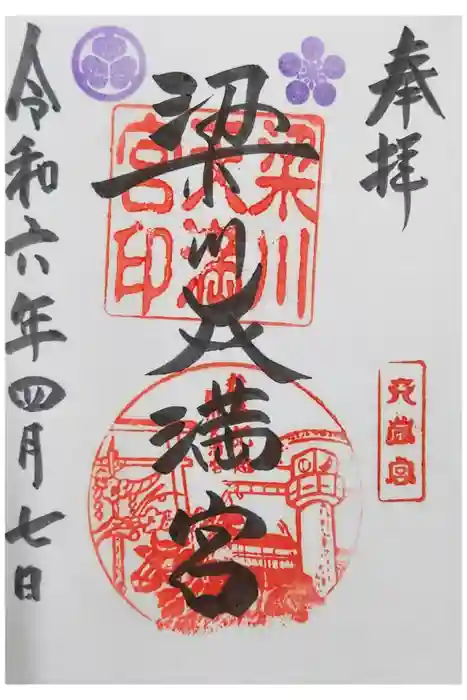 奉拝
梁川天満宮
梁川天満宮印
令和六年四月七日